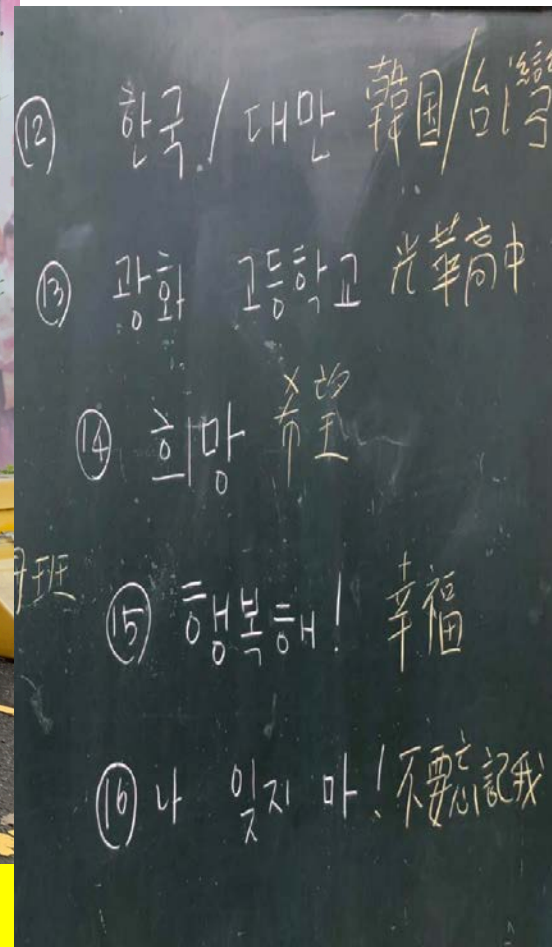 ⑫ 한국/대만 韓国/台灣
⑬ 광화 고등학교 光華高中
⑭ 희망 希望
班
⑮ 행복해! 幸福
⑯ 나 잊지 마! 不要忘記我